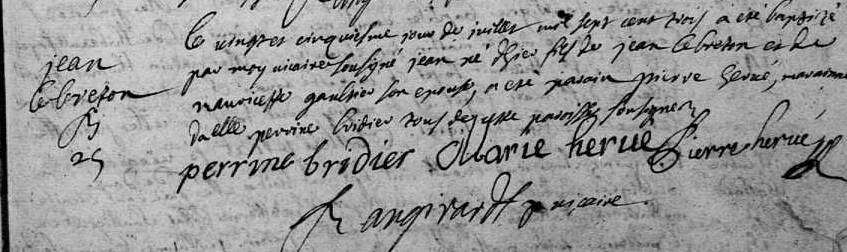 Le vingt et cinquiesme jour de juillet mil sept cent trois a été baptisé
jean
par moy vicaire soussigné jean né d'hier fils de jean lebreton et de
lebreton
mauricette gaultier son epouse, a été parain pierre hervé, maraine
damelle perrine bridier tous de cette paroisse soussignez
25
perrinne bridier Marie herve Pierre hervé
vicaire